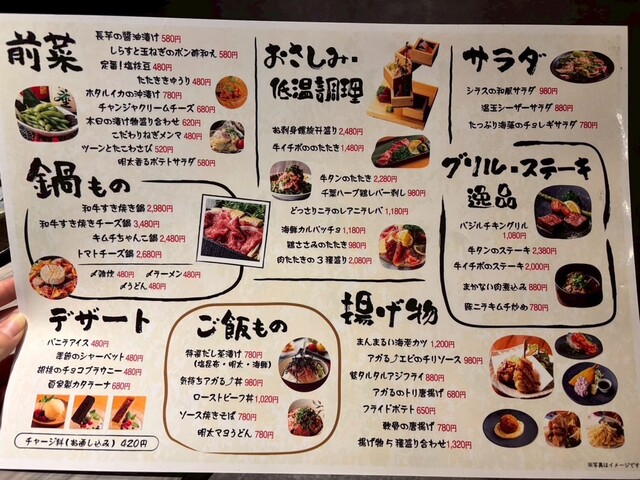 前菜
長芋の醤油漬け 580円
しらすと玉ねぎのポン酢和え 580円
定番!塩枝豆 480円
たたききゅうり 480円
ホタルイカの沖漬け 780円
チャンジャクリームチーズ 680円
本日の漬け物盛り合わせ 620円
こだわりねぎメンマ 480円
ツーンとたこわさび 520円
明太香るポテトサラダ 580円
鍋もの
和牛すき焼き鍋 2,980円
和牛すき焼きチーズ鍋 3,480円
キムチちゃんこ鍋 2,480円
トマトチーズ鍋 2,680円
〆雑炊 480円 〆ラーメン 480円
〆うどん 480円
おさしみ・
低温調理
お刺身螺旋階盛り 2,480円
牛イチボのたたき 1,480円
牛タンのたたき 2,280円
千葉ハーブ鶏レバー刺し 980円
どっさりニラのレアニラレバ 1,180円
海鮮カルパッチョ 1,180円
鶏ささみのたたき 980円
肉たたきの3種盛り 2,080円
サラダ
シラスの和風サラダ 980円
温玉シーザーサラダ 880円
たっぷり海藻のチョレギサラダ 780円
グリル・ステーキ
逸品
バジルチキングリル
1,080円
牛タンのステーキ 2,380円
牛イチボのステーキ 2,000円
まかない肉煮込み 880円
豚ニラキムチ炒め 780円
デザート
バニラアイス 480円
季節のシャーベット 480円
胡桃のチョコブラウニー 480円
自家製カタラーナ 680円
チャージ料(お通し込み) 420円
ご飯もの
特選だし茶漬け 780円
(塩昆布・明太・海鮮)
気持ちアガる⤴丼 980円
ローストビーフ丼 1,020円
ソース焼きそば 780円
明太マヨうどん 780円
揚げ物
まんまるい海老カツ 1,200円
アガる⤴エビのチリソース 980円
鷄タルタルアジフライ 880円
アガるのトリ唐揚げ 880円
フライドポテト 650円
軟骨の唐揚げ 780円
揚げ物5種盛り合わせ 1,320円
※写真はイメージです